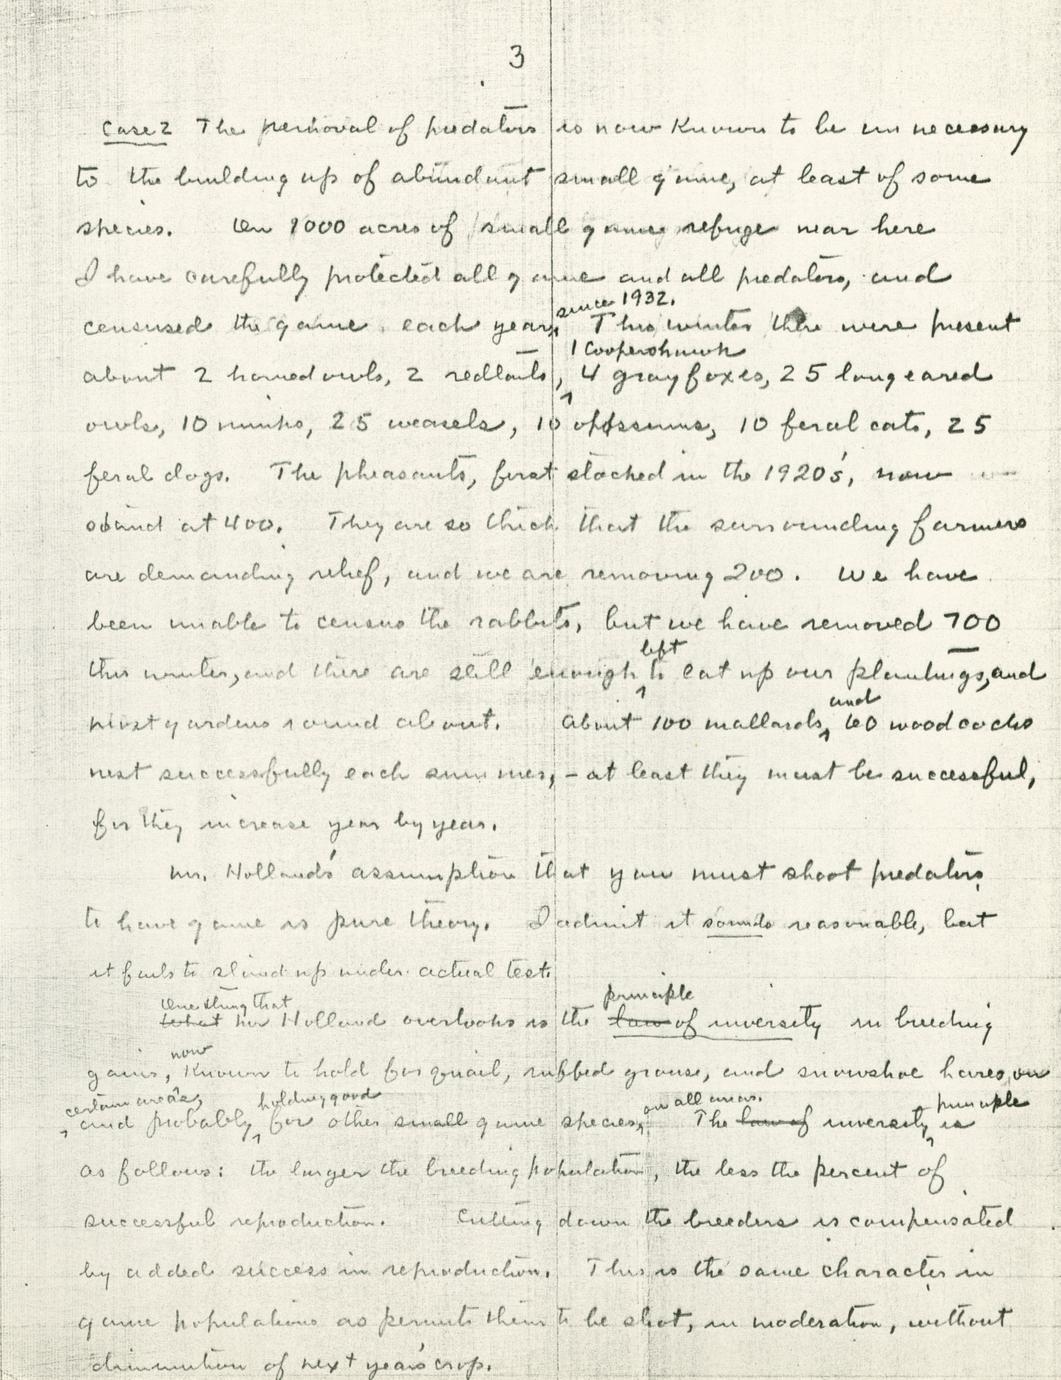 3
Case 2 The removal of predators is now known to be unnecessary
to the building up of abundant small game, at least of some
species. On 1000 acres of small game refuge near here
I have carefully protected all game and all predators, and
censused the game each year,
since 1932.
This winter there were present
1 Coopershawk
about 2 horned owls, 2 redtails, 4 gray foxes, 25 longeared
owls, 10 minks, 25 weasels, 10 opossums, 10 feral cats, 25
feral dogs. The pheasants, first stocked in the 1920s', now
stand at 400. They are so thick that the surrounding farmers
are demanding relief, and we are removing 200. We have
been unable to census the rabbits, but we have removed 700
left
this winter, and there are still enough to eat up our plantings, and
and
most gardens round about. About 100 mallards, 60 woodcocks
nest successfully each summer, - at least they must be successful,
for they increase year by year.
Mr. Holland's assumption that you must shoot predators
to have game is pure theory. I admit it sounds reasonable, but
it fails to stand up under actual test.
One thing that principle
What Mr Holland overlooks is the law of inversity in breeding
now
gains, known to hold for quail, ruffed grouse, and snowshoe hares, on
certain areas, holding good on all areas. principle
and probably for other small game species. The law of inversity is
as follows: the larger the breeding population, the less the percent of
successful reproduction. Cutting down the breeders is compensated
by added success in reproduction. This is the same character in
game populations as permits them to be shot, in moderation, without
diminution of next year's crop.